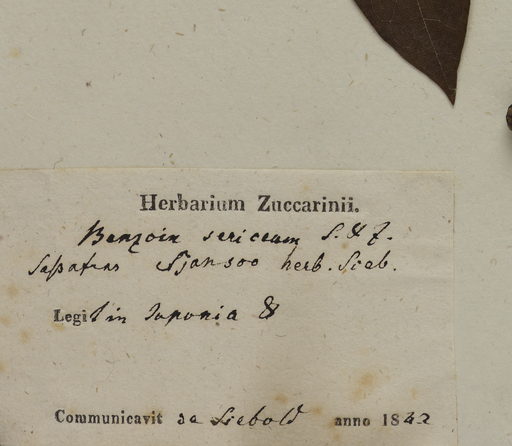 Herbarium Zuccarinii.
Benzoin sericeum S. & Z.
Saßafras Sjansoo herb. Sieb.
Legit in Japonia &
Communicavit de Siebold anno 1842